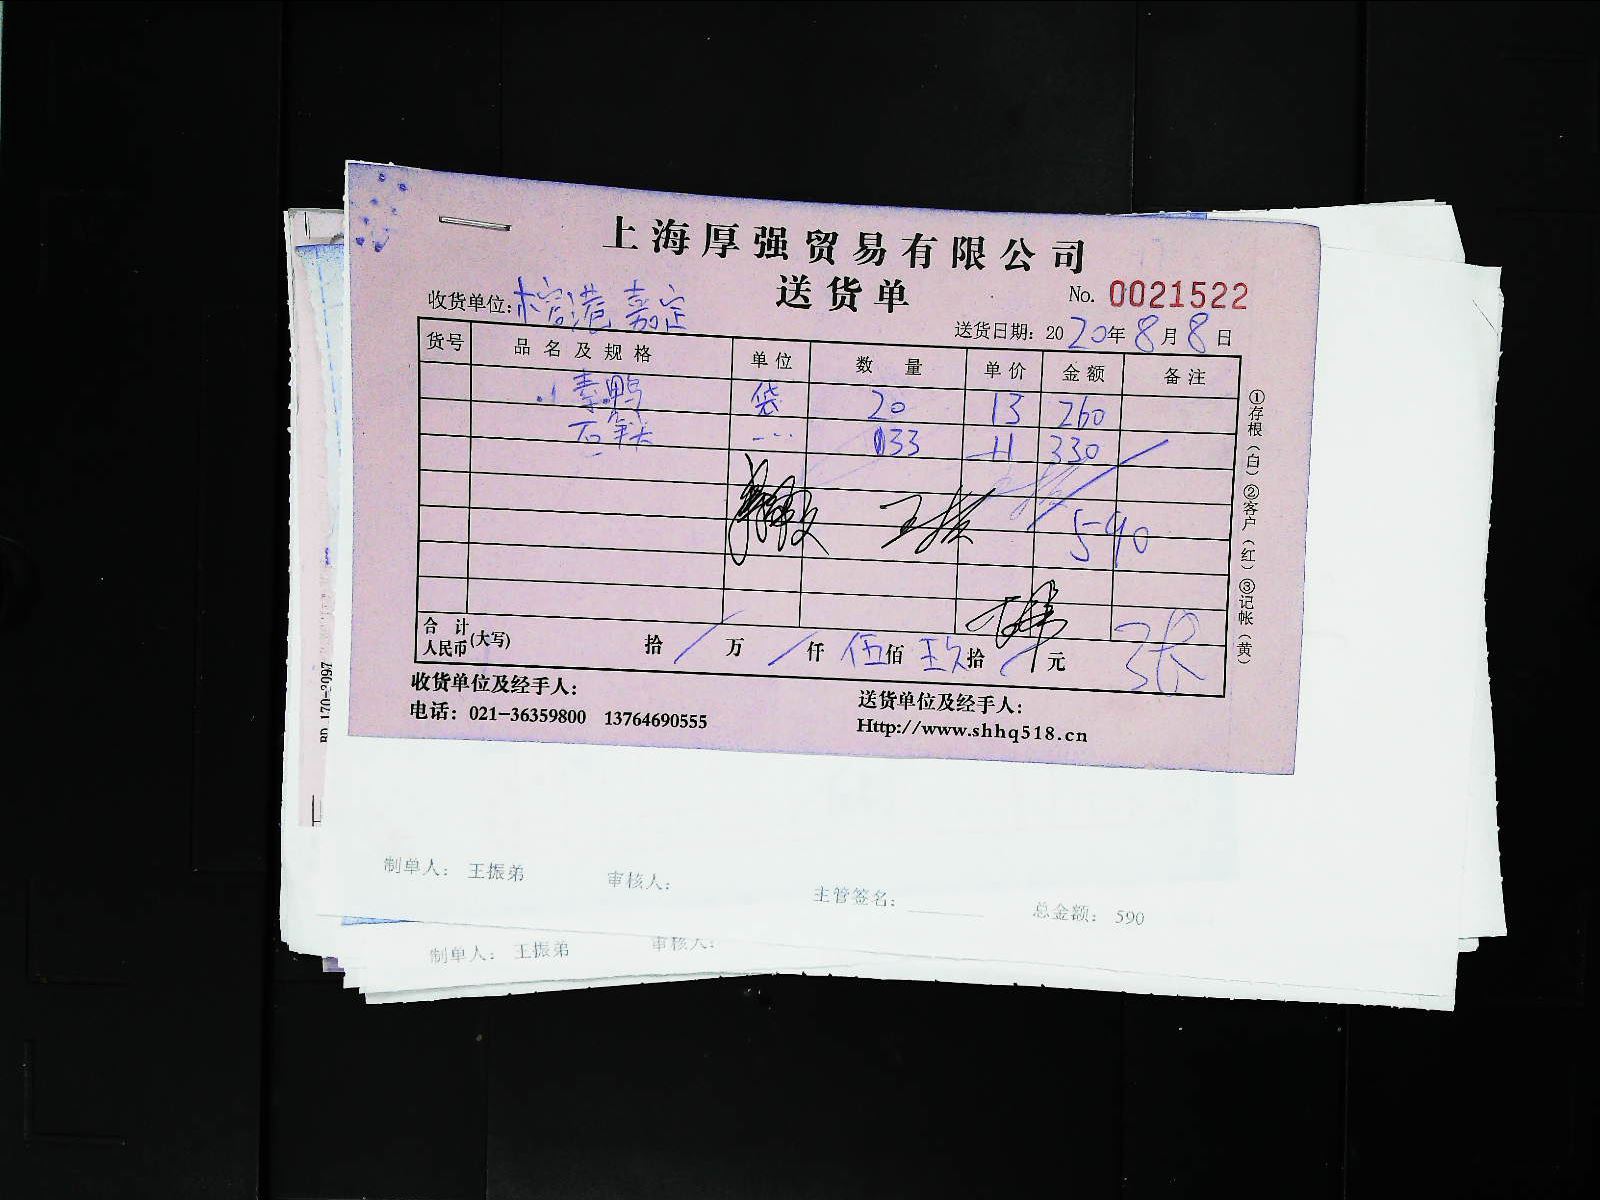 上海厚强贸易有限公司
送货单
No. 0021522
收货单位: 榕港 嘉定
送货日期: 2020年8月8日
货号 品名及规格 单位 数量 单价 金额 备注
素鸭 袋 20 13 260
33 11 330
王振
590
合计人民币(大写) 拾 / 万 / 仟 伍佰 玖拾 元
收货单位及经手人:
送货单位及经手人:
电话: 021-36359800 13764690555
Http://www.shhq518.cn
①存根(白)②客户(红)③记帐(黄)
制单人: 王振弟 审核人: 主管签名: 总金额: 590
制单人: 王振弟 审核人: